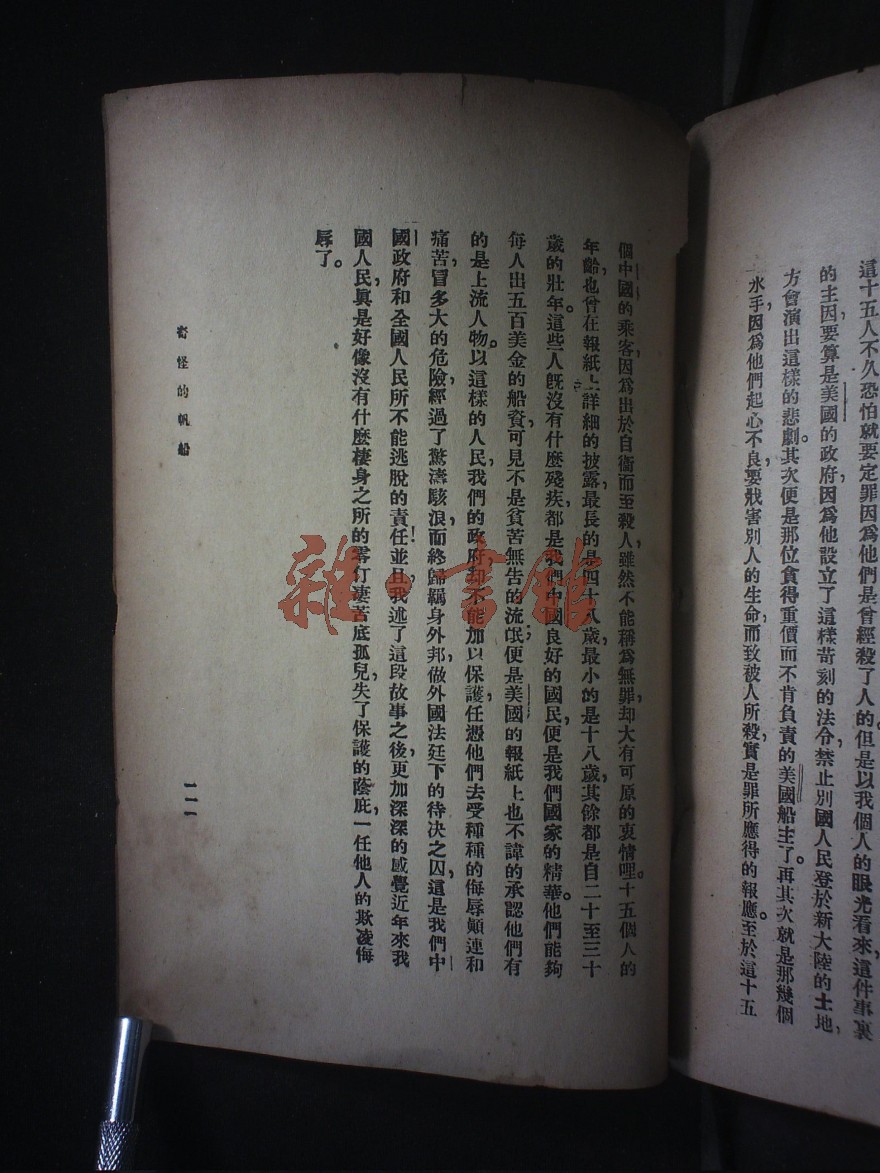 這十五人不久恐怕就要定罪因爲他們是曾經殺了人的。但是以我個人的眼光看來，這件事裏
的主因要算是美國的政府因爲他設立了這樣苛刻的法令禁止別國人民登於新大陸的土地，
方會演出這樣的悲劇。其次便是那位貪得重價而不肯負責的美國船主了。再其次就是那幾個
水手因爲他們起心不良，要戕害別人的生命，而致被人所殺，實是罪所應得的報應。至於這十五
個中國的乘客，因爲出於自衞而至殺人，雖然不能稱爲無罪，却大有可原的衷情哩。十五個人的
年齡，也曾在報紙上詳細的披露，最長的是四十八歲，最小的是十八歲，其餘都是自二十至三十
歲的壯年。這些人旣沒有什麼殘疾，都是我們中國良好的國民，便是我們國家的精華。他們能夠
每人出五百美金的船資，可見不是貧苦無告的流氓；便是美國的報紙上也不諱的承認他們有
的是上流人物。以這樣的人民，我們的政府却不能加以保護，任憑他們去受種種的侮辱顚連和
痛苦，冒多大的危險，經過了驚濤駭浪，而終歸羈身外邦，做外國法廷下的待決之囚，這是我們中
國政府和全國人民所不能逃脫的責任！並且，我述了這段故事之後，更加深深的感覺近年來我
國人民，眞是好像沒有什麼棲身之所的零仃凄苦底孤兒，失了保護的蔭庇，一任他人的欺凌侮
辱了。
奇怪的帆船
一一一
雜·書館